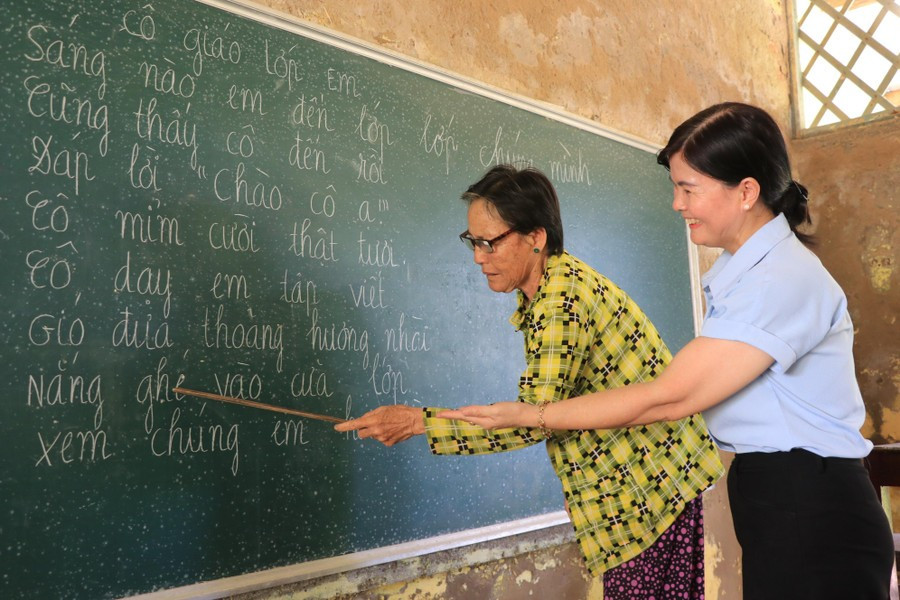 Cô giáo lớp Em
Sáng nào em đến lớp lớp chúng mình
Cũng thấy cô đến rồi
Đáp lời "Chào cô ạ"
Cô mỉm cười thật tươi.
Cô dạy em tập viết
Gió đưa thoảng hương nhài
Nắng ghé vào cửa lớp
xem chúng em